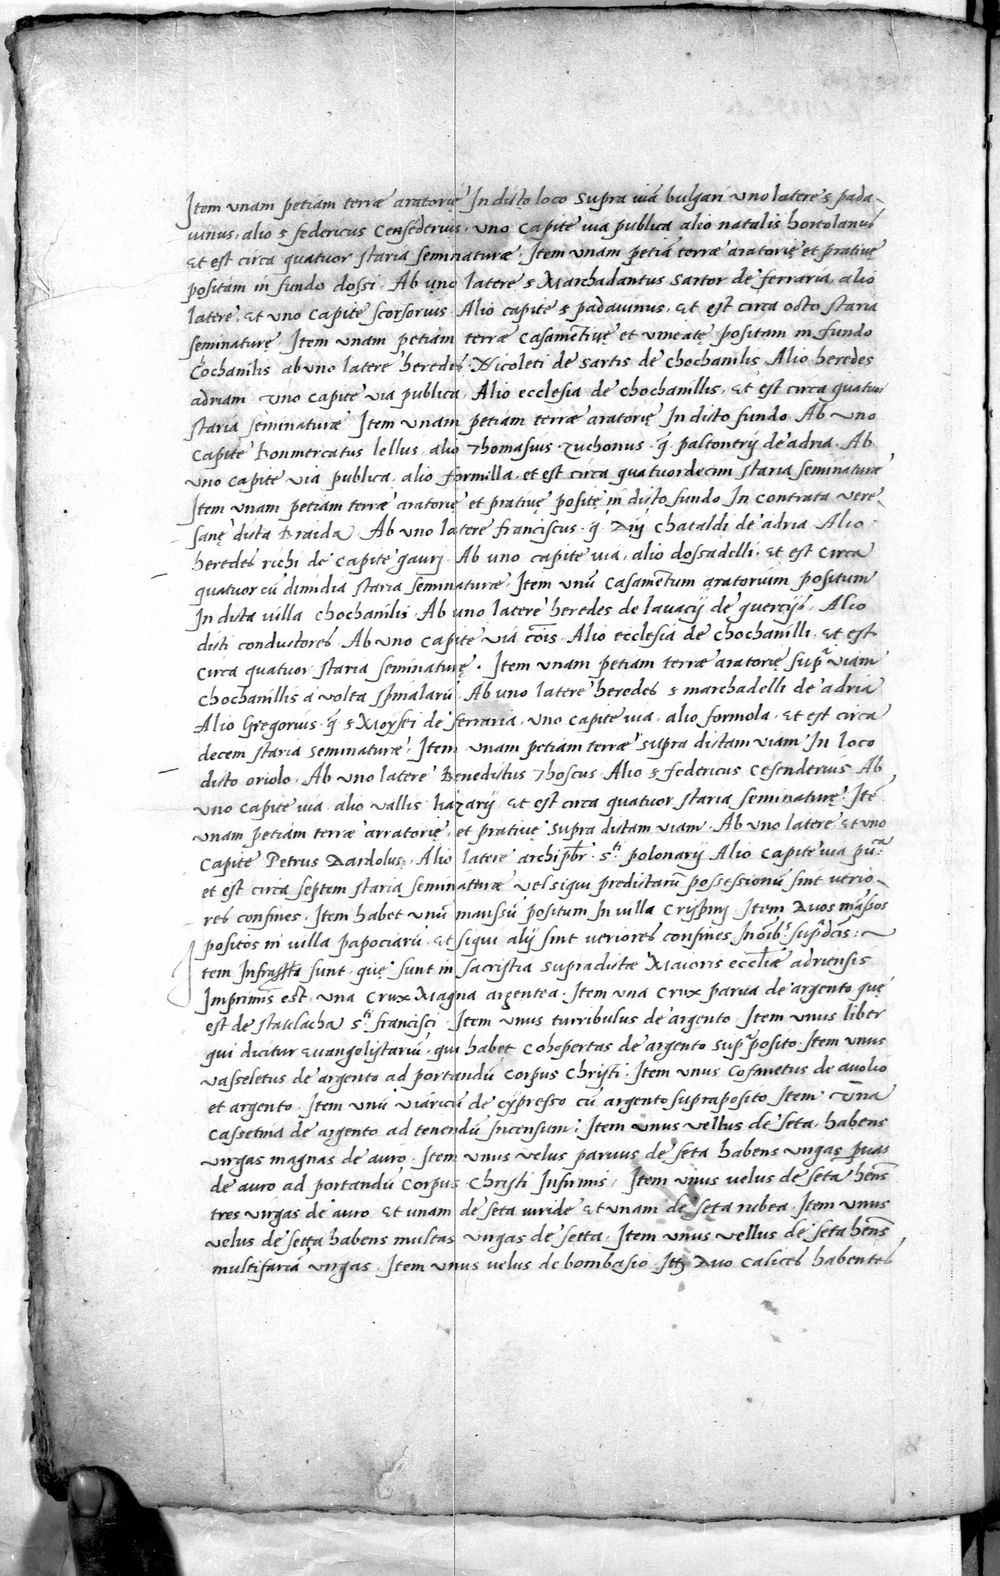 Item unam petiam terræ aratorię In dicto loco supra uiã bulgari uno latere s pada-
uinus, alio s federicus Censederius. uno capite uia publica alio natalis hortolanus
Et est circa quatuor staria seminaturæ. Item unam petiã terræ aratorię et pratiuę
positam in fundo dossi. Ab uno latere s Marchadantus sartor de ferraria, alio
latere, Et uno capite scorsorius Alio capite s padauinus, Et est circa octo staria
seminaturę. Item unam petiam terræ casamẽtiuę et uineatę positam in fundo
Cochanilis ab uno latere heredes Nicoleti de sartis de Chochanilis Alio heredes
adriani uno capite uia publica, Alio ecclesia de chochanillis, Et est circa quatuor
staria seminaturæ Item unam petiam terræ aratorię In dicto fundo. Ab uno
capite Bonmercatus lellus. alio Thomasius zuchonus. q̃ paltonerij de adria. Ab
uno capite uia publica, alio formilla, et est circa quatuordecim staria seminaturæ
Item unam petiam terræ aratorię et pratiuę positę in dicto fundo In contrata uere-
sanę dicta Braida. Ab uno latere franciscus. q̃ Aij chataldi de adria Alio
heredes richi de capite gaurj. Ab uno capite uia, alio dossadelli. Et est circa
quatuor cũ dimidia staria seminaturæ. Item unũ casamẽtum aratorium positum
In dicta uilla chochanilis. Ab uno latere heredes de lauacij de guercijs, Alio
dicti conductores. Ab uno capite uia cõis. Alio ecclesia de chochanilli, et est
circa quatuor staria seminaturę. Item unam petiam terræ aratorię supª uiam
chochanillis a uolta spinalarũ. Ab uno latere heredes s marchadelli de adria
Alio Gregorius. q̃ s Moyski de ferraria. uno capite uia. alio formola. Et est circa
decem staria seminaturæ. Item unam petiam terræ supra dictam uiam In loco
dicto oriolo. Ab uno latere Benedictus Thoscus. Alio s federicus Cesenderius Ab
uno capite uia. alio uallis hazarij. Et est circa quatuor staria seminaturę. Itẽ
unam petiam terræ arratorię, et pratiuę supra dictam uiam. Ab uno latere, Et uno
capite Petrus Dardolus. Alio latere archipbr. sti polonarij Alio capite uia puª
et est circa septem staria seminaturæ uel siqui predictarũ possessionũ sint uerio-
res confines. Item habet unũ manssũ positum In uilla Crispini. Item Duos mãsos
positos in uilla papociarũ. Et siqui alij sint ueriores confines In oĩb. supªdcis:
Item Infrascta sunt. quę sunt in sacristia supradictæ Maioris eccliæ adriensis
Imprimis est, una Crux Magna argentea. Item una Crux parua de argento quę
est de stauelacha sti francisci. Item unus turribulus de argento. Item unus liber
qui dicitur Euangolistariũ, qui habet cohopertas de argento supªposito. Item unus
uasseletus de argento ad portandũ Corpus Christi. Item unus Cofanetus de auolio
et argento. Item unũ uiaricũ de cypresso cũ argento supraposito Item una
cassetina de argento ad tenendũ Incensum. Item unus uellus de seta, habens
uirgas magnas de auro. Item unus uelus paruus de seta habens uirgas puas
de auro ad portandũ Corpus Christi Infirmis. Item unus uelus de seta hẽns
tres uirgas de auro. Et unam de seta uiride Et unam de seta rubea. Item unus
uelus de setta habens multas uirgas de setta. Item unus uellus de seta hẽns
multifaria uirgas. Item unus uelus de bombasio. Itẽ Duo calices habentes